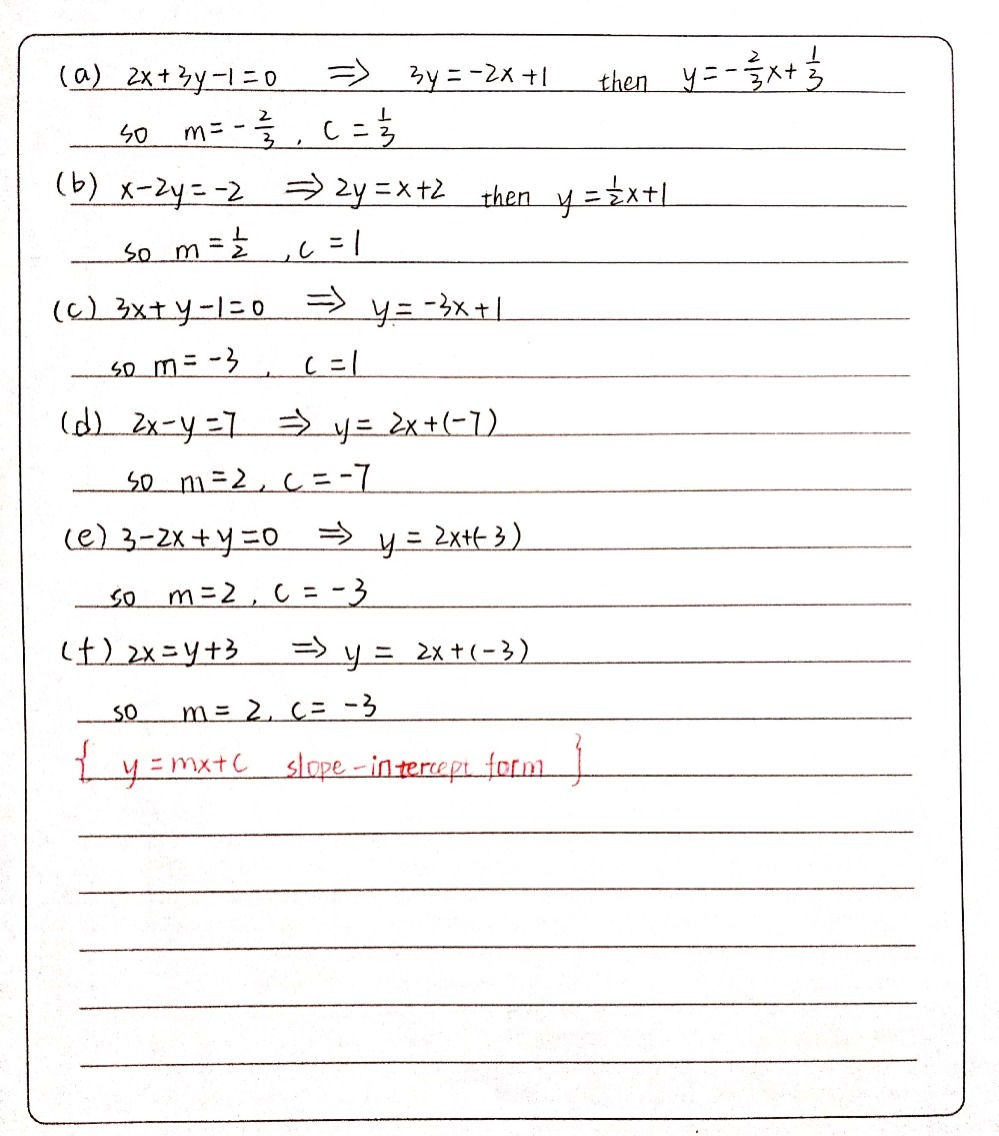 (a) 2x+3y-1=0 ⇒ 3y=-2x+1 then y=-2/3x+1/3
so m=-2/3, c=1/3
(b) x-2y=-2 ⇒ 2y=x+2 then y=1/2x+1
so m=1/2, c=1
(c) 3x+y-1=0 ⇒ y=-3x+1
so m=-3, c=1
(d) 2x-y=7 ⇒ y=2x+(-7)
so m=2, c=-7
(e) 3-2x+y=0 ⇒ y=2x+(-3)
so m=2, c=-3
(f) 2x=y+3 ⇒ y=2x+(-3)
so m=2, c=-3
{ y=mx+c slope-intercept form }